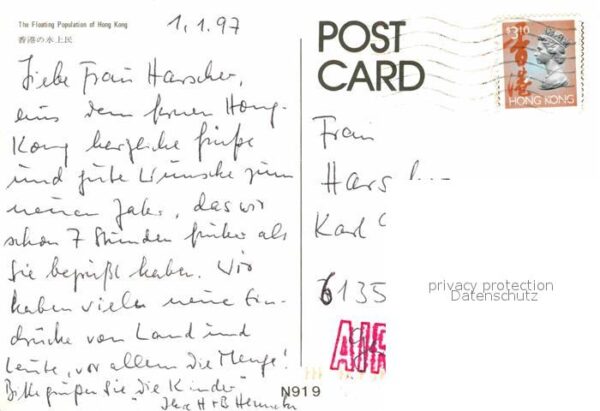 The Floating Population of Hong Kong
香港の水上民
1.1.97
Liebe Frau Harscher,
aus dem fernen Hong-
Kong herzliche Grüße
und gute Wünsche zum
neuen Jahr, das wir
schon 7 Stunden früher als
Sie begrüßt haben. Wir
haben viele neue Ein-
drücke von Land und
Leute, vor allem die Menge!
Bitte grüßen Sie "die Kinder"
Ihre H+B
POST
CARD
$3.10
香港
HONG KONG
Frau
Karl
6135
privacy protection
Datenschutz
AIR
N919